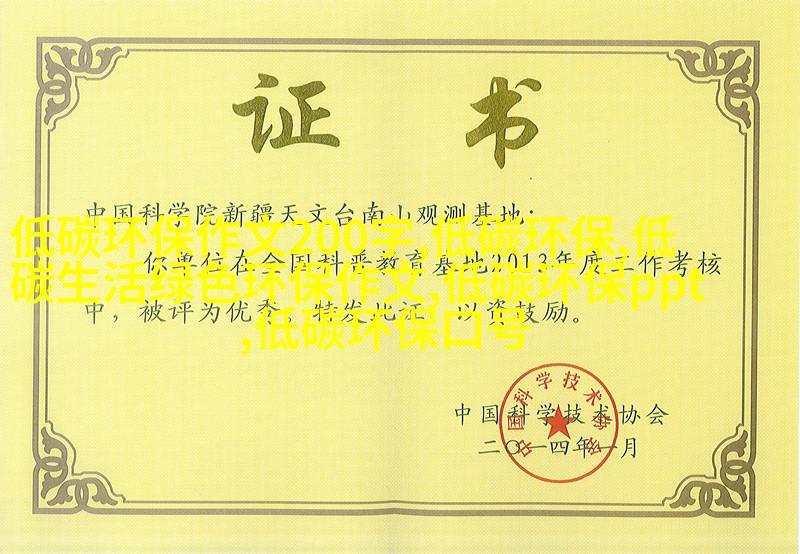 证书
中国科学院新疆天文台南山观测基地:
低碳环保作文200字,低碳环保,低
你单位在全国科普教育基地2013年度工作考核
碳生活绿色环保作文,低碳环保ppt
中，被评为优秀。特发此证，以资鼓励。
,低碳环保口号
中国科学技术协会
中国科学技术协会
二〇一四年一月